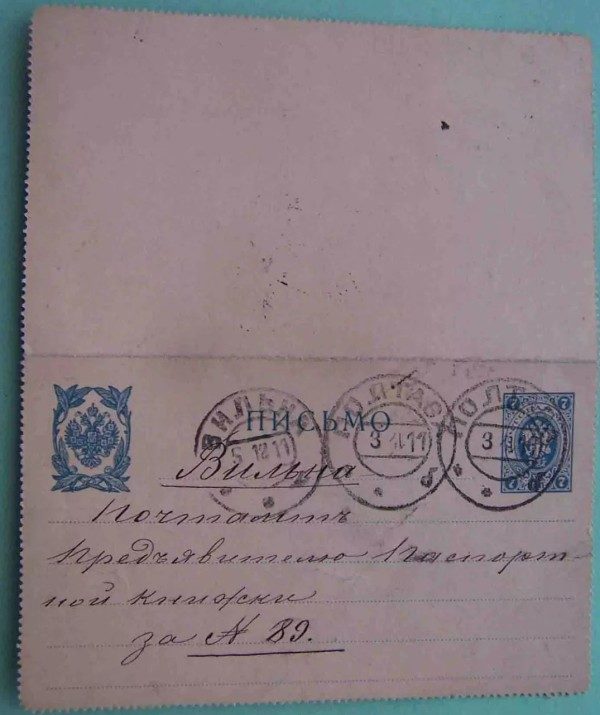 ПИСЬМО
ВИЛЬНА
5 12 11
ПОЛТАВА
3 12 11
ПОЛТ
3
7 7
7 7
Вильна
Почтамтъ
Предъявителю Паспорт-
ной книжки
за № 89.